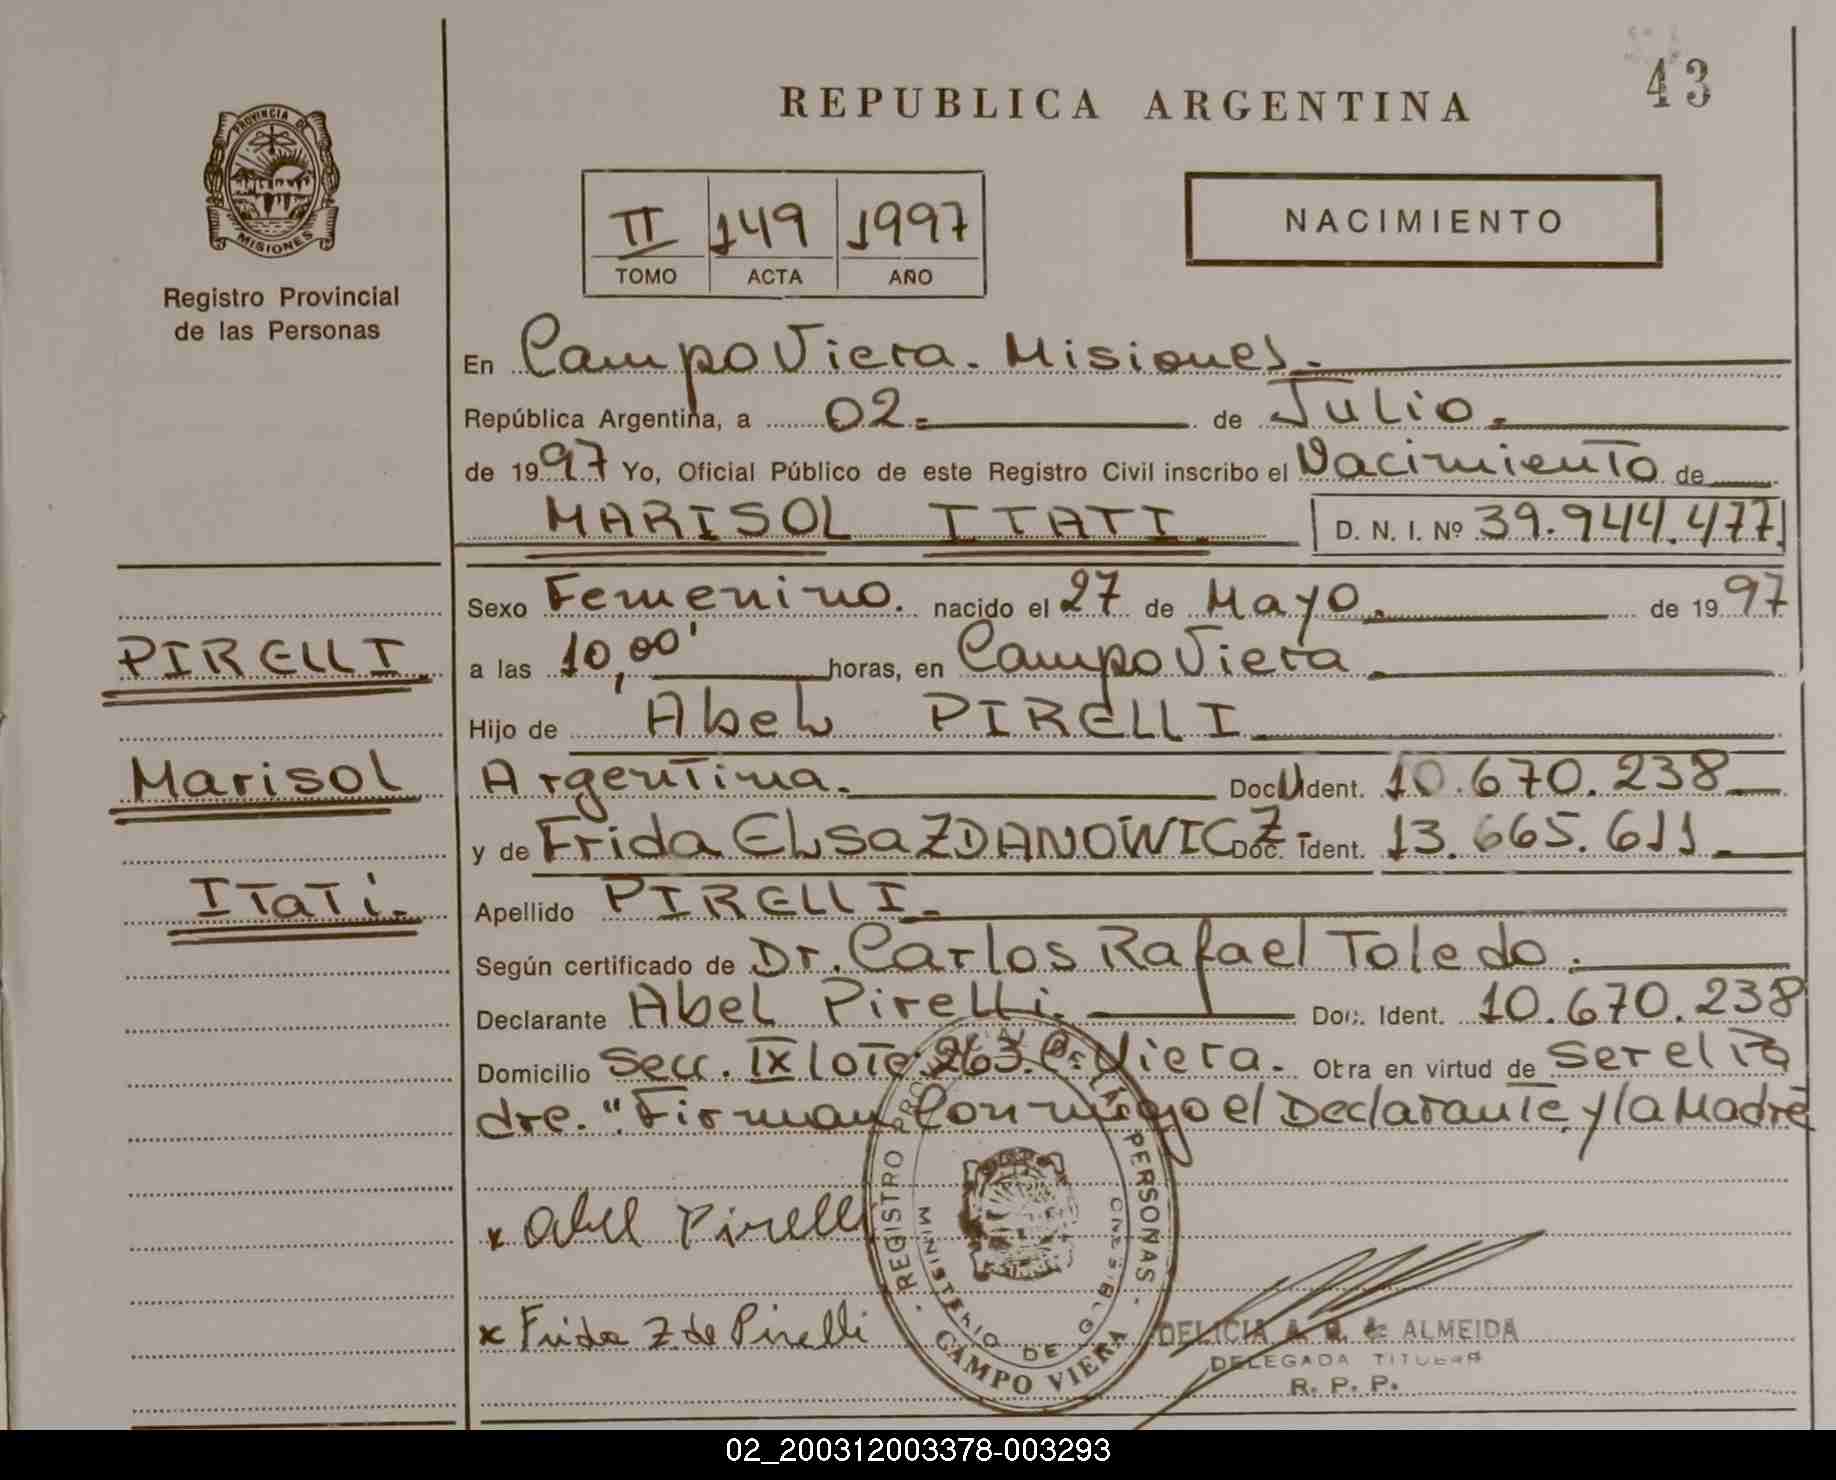 43
REPUBLICA ARGENTINA
PROVINCIA DE
MISIONES
Registro Provincial
de las Personas
II 149 1997
TOMO ACTA AÑO
NACIMIENTO
En Campo Viera. Misiones.
República Argentina, a 02. de Julio.
de 1997 Yo, Oficial Público de este Registro Civil inscribo el Nacimiento de
MARISOL ITATI D. N. I. Nº 39.944.477
Sexo Femenino. nacido el 27 de Mayo. de 1997
PIRELLI
a las 10,00' horas, en Campo Viera
Hijo de Abel PIRELLI
Marisol
Argentina. Doc. U Ident. 10.670.238
y de Frida Elsa ZDANOWICZ- Doc. Ident. 13.665.611
Itati.
Apellido PIRELLI.
Según certificado de Dr. Carlos Rafael Toledo.
Declarante Abel Pirelli. Doc. Ident. 10.670.238
Domicilio Secc. IX lote 263. C. Viera. Obra en virtud de ser el Pa
dre. "Firman Conmigo el Declarante y la Madre
x Abel Pirelli
x Frida Z. de Pirelli
REGISTRO PROVINCIAL DE LAS PERSONAS
MINISTERIO DE GOBIERNO
CAMPO VIERA
DELICIA A. de ALMEIDA
DELEGADA TITULAR
R. P. P.
02_200312003378-003293